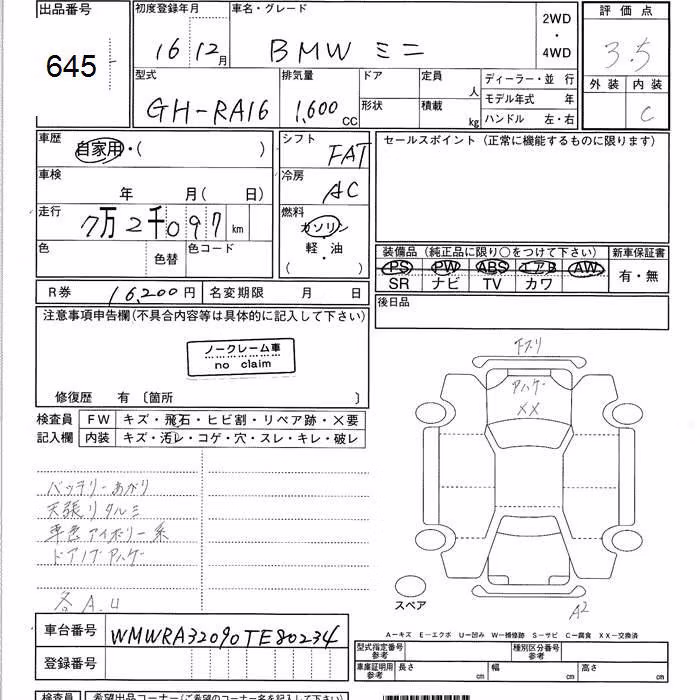 出品番号 初度登録年月 車名・グレード 2WD ・ 4WD 評価点
645 16 12月 BMW ミニ 3.5
型式 排気量 ドア 定員 人 ディーラー・並 行 外装 内装
GH-RA16 1,600 CC 形状 積載 kg モデル年式 年 C
ハンドル 左・右
車歴 自家用・( ) シフト FAT セールスポイント (正常に機能するものに限ります)
車検 年 月(日) 冷房 AC
走行 7万2千097 km 燃料 ガソリン
色 色替 色コード 軽・油 ( )
装備品 (純正品に限り○をつけて下さい) 新車保証書
PS PW ABS エアB AW 有・無
SR ナビ TV カワ
R券 16,200円 名変期限 月 日 後日品
注意事項申告欄(不具合内容等は具体的に記入して下さい)
ノークレーム車
no claim
修復歴 有 〔箇所 〕
下スリ
アハゲ
XX
検査員 FW キズ・飛石・ヒビ割・リペア跡・X要
記入欄 内装 キズ・汚レ・コゲ・穴・スレ・キレ・破レ
バッテリーあがり
天張リタルミ
車色アイボリー系
ドアノブアハゲ
各A.U
スペア
A2
A－キズ E－エクボ U－凹み W－補修跡 S－サビ C－腐食 XX－交換済
車台番号 WMWRA32090TE80234
型式指定番号 参考 種別区分番号 参考
登録番号 車庫証明用 参考 長さ cm 幅 cm 高さ cm
検査員 希望出品コーナー(ご希望のコーナー名を記入して下さい)